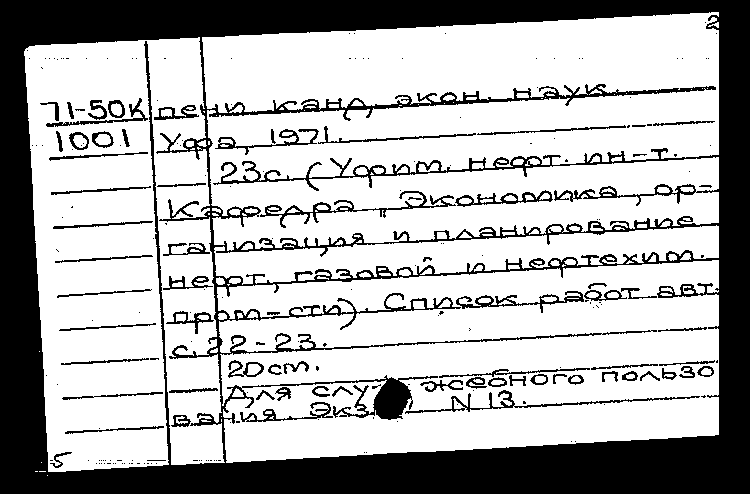 2
71-50К пени канд. экон. наук.
1001 Уфа, 1971.
23с. (Уфим. нефт. ин-т.
Кафедра „Экономика, ор-
ганизация и планирование
нефт., газовой и нефтехим.
пром-сти). Список работ авт.
с. 22-23.
20см.
(Для служебного пользо
вания. Экз.) N 13.
5